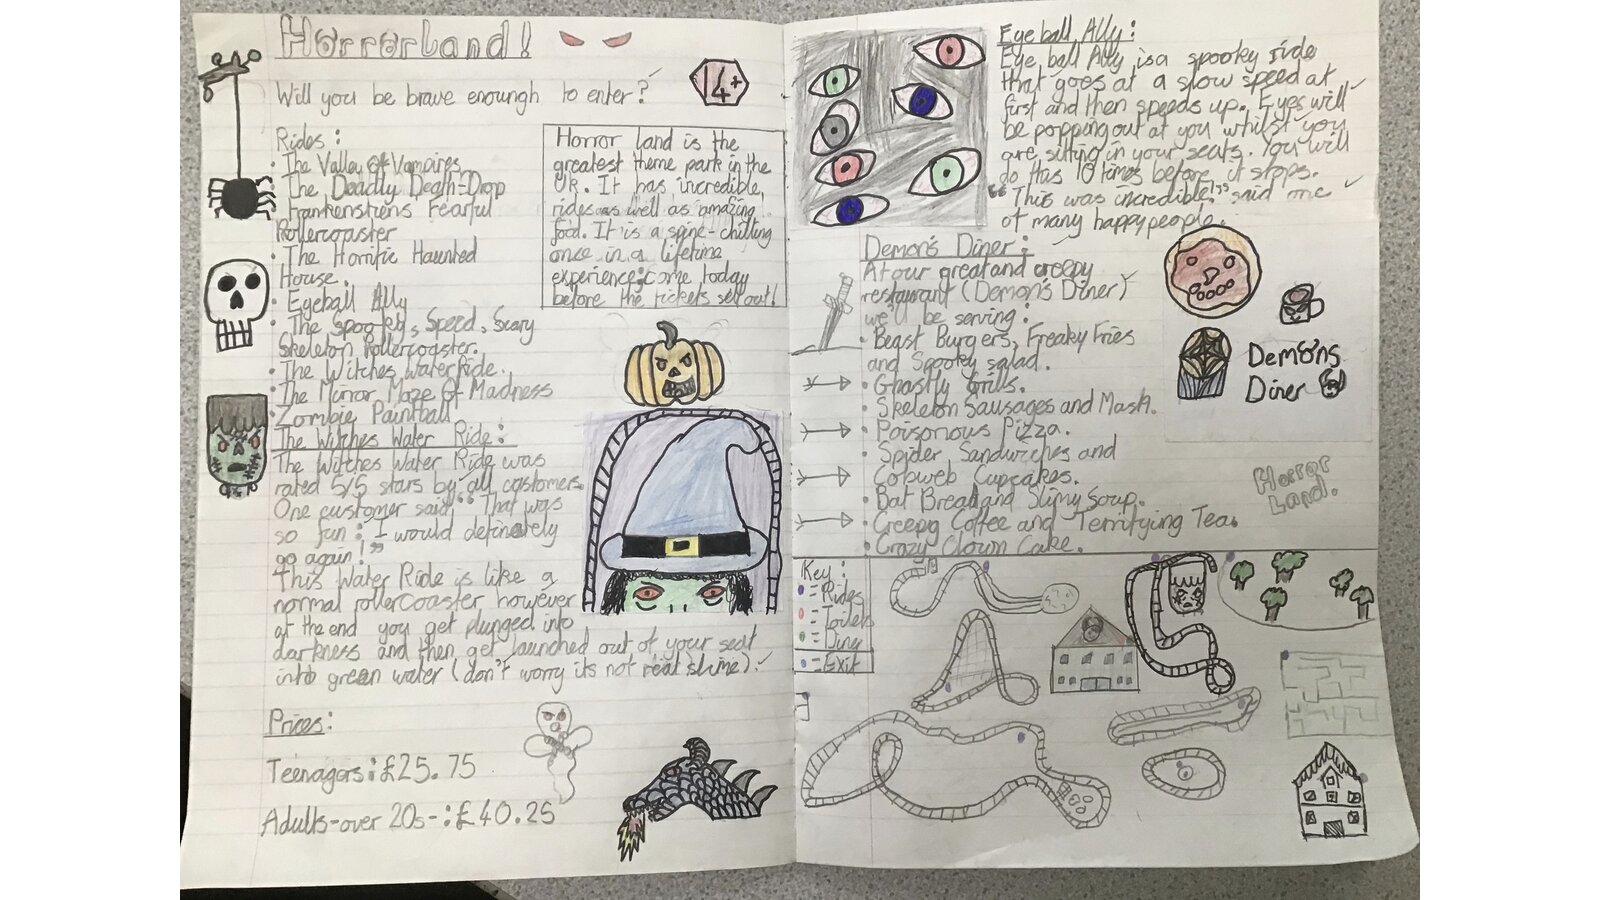 Horrorland!
Will you be brave enoungh to enter?
14+
Rides:
• The Valley of Vampires
• The Deadly Death-Drop
• Frankenstiens Fearful
Rollercoaster
• The Horrific Haunted
House.
• Eyeball Ally
• The Spooky, Speed, Scary
Skeleton Rollercoaster.
• The Witches Water Ride.
• The Mirror Maze Of Madness
• Zombie Paintball
Horror land is the
greatest theme park in the
UK. It has incredible
rides as well as amazing
food. It is a spine-chilling
once in a lifetime
experience; come today
before the tickets sell out!
The Witches Water Ride:
The Witches Water Ride was
rated 5/5 stars by all customers.
One customer said "That was
so fun: I would definetely
go again!"
This Water Ride is like a
normal rollercoaster however
at the end you get plunged into
darkness and then get launched out of your seat
into green water (don't worry its not real slime).
Prices:
Teenagers: £25.75
Adults-over 20s-: £40.25
Eyeball Ally:
Eye ball Ally is a spooky ride
that goes at a slow speed at
first and then speeds up. Eyes will
be popping out at you whilst you
are sitting in your seats. You will
do this 10 times before it stops.
"This was incredible!" said one
of many happy people.
Demon's Diner:
At our great and creepy
restaurant (Demon's Diner)
we'll be serving:
• Beast Burgers, Freaky Fries
and Spooky salad.
• Ghostly Grills.
• Skeleton Sausages and Mash.
• Poisonous Pizza.
• Spider, Sandwiches and
Cobweb Cupcakes.
• Bat Bread and Slimy Soup.
• Creepy Coffee and Terrifying Tea.
• Crazy Clown Cake.
Demons
Diner
Horror
Land.
Key:
= Rides
= Toilets
= Diner
= Exit